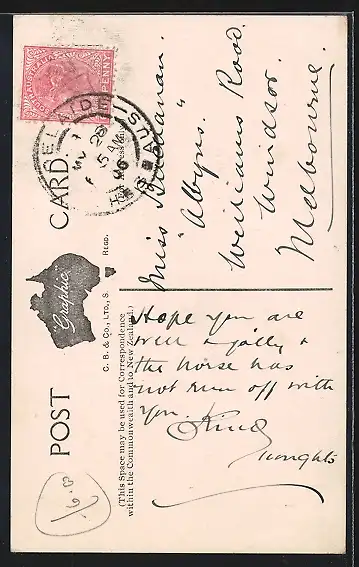 POST CARD
SOUTH AUSTRALIA
PENNY
ADELAIDE
5 AM
Graphic
C. B. & Co., LTD., S. REGD.
(This Space may be used for Correspondence
within the Commonwealth and to New Zealand.)
Miss
"Albyns."
Williams Road.
Windsor.
Melbourne.
Hope you are
well & jolly &
the horse has
not run off with
you. Kind
Thoughts